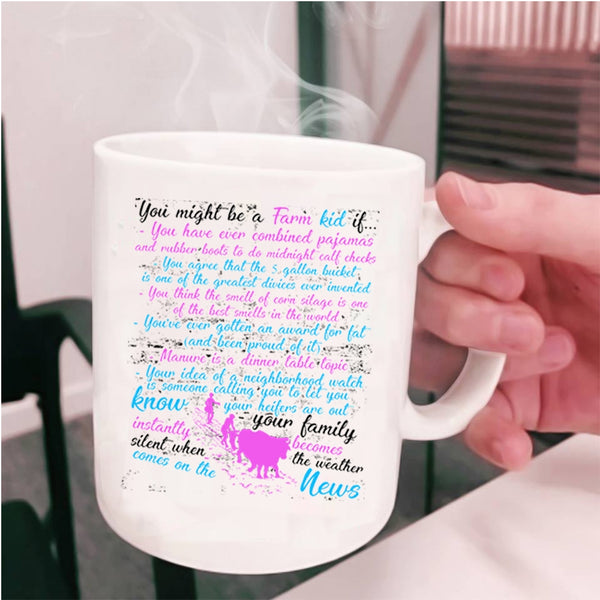 You might be a Farm kid if...
- You have ever combined pajamas
and rubber boots to do midnight calf checks
- You agree that the 5 gallon buicket
is one of the greatest divices ever invented
- You think the smell of corn silage is one
of the best smells in the world
- You've ever gotten an award for fat
(and been proud of it)
Manure is a dinner table topic
- Your idea of a neighborhood watch
is someone calling you to let you
know your heifers are out
- your family
instantly becomes
silent when the weather
comes on the News